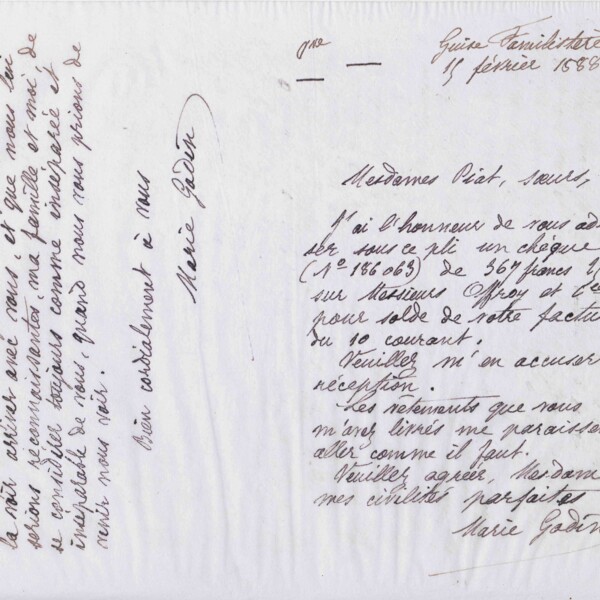 la voir arriver avec vous, et que nous lui
serions reconnaissantes, ma famille et moi, de
se considérer toujours comme inséparée et
inséparable de vous, quand nous vous prions de
venir nous voir.
Bien cordialement à vous
Marie Godin
Guise Familistère
15 février 1888
Mesdames Piat, sœurs,
J'ai l'honneur de vous adres
ser sous ce pli un chèque
(No 186063) de 367 francs
sur Messieurs Offroy et Cie
pour solde de votre factu
du 10 courant.
Veuillez m'en accuser
réception.
Les vêtements que vous
m'avez livrés me paraisse
aller comme il faut.
Veuillez agréer, Mesdam
mes civilités parfaites
Marie Godin